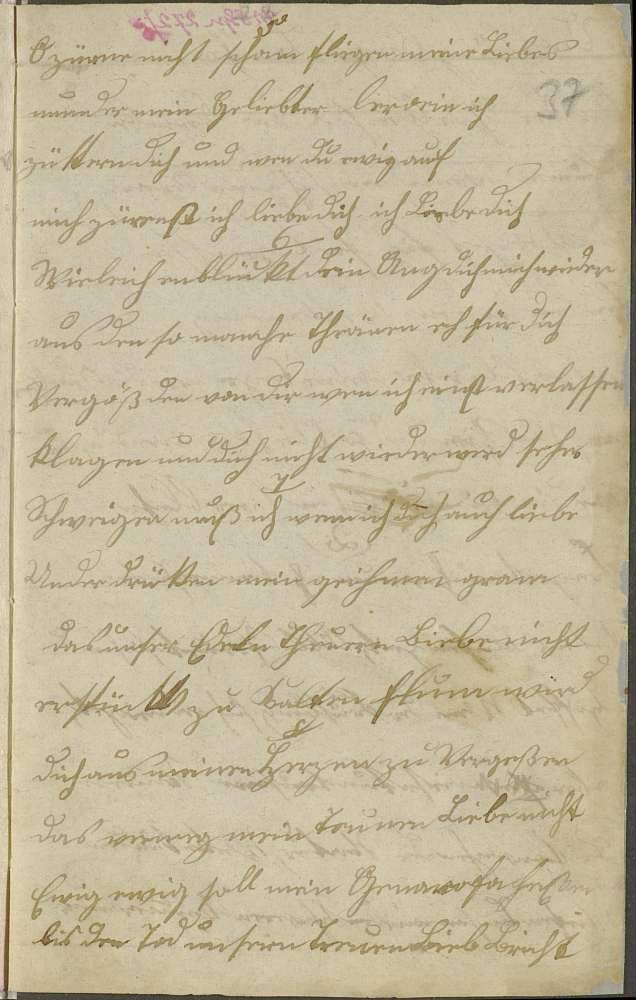 O zürne nicht schon fliegen meine Liebes
37
munder mein Geliebter
zü ttern dich und wen du ewig auf
mich zürnest ich liebe dich ich Liebe dich
Wieleich enblückt dein Aug dich mich wieder
aus den so manche Thränen ich für dich
Vergöß den von dir wen ich einst verlassen
klagen und dich nicht wieder werd sehn
Schweigen muß ich wenn ich dich auch liebe
Under drücken mein geheimen gram
das unser Edeln Theuern Liebe nicht
zu kalten
dich aus meinen Herzen zu Vergeßen
das vermag mein Liebe nicht
Ewig ewig soll mein
bis den Tod unsern Treuen Lieb Bricht